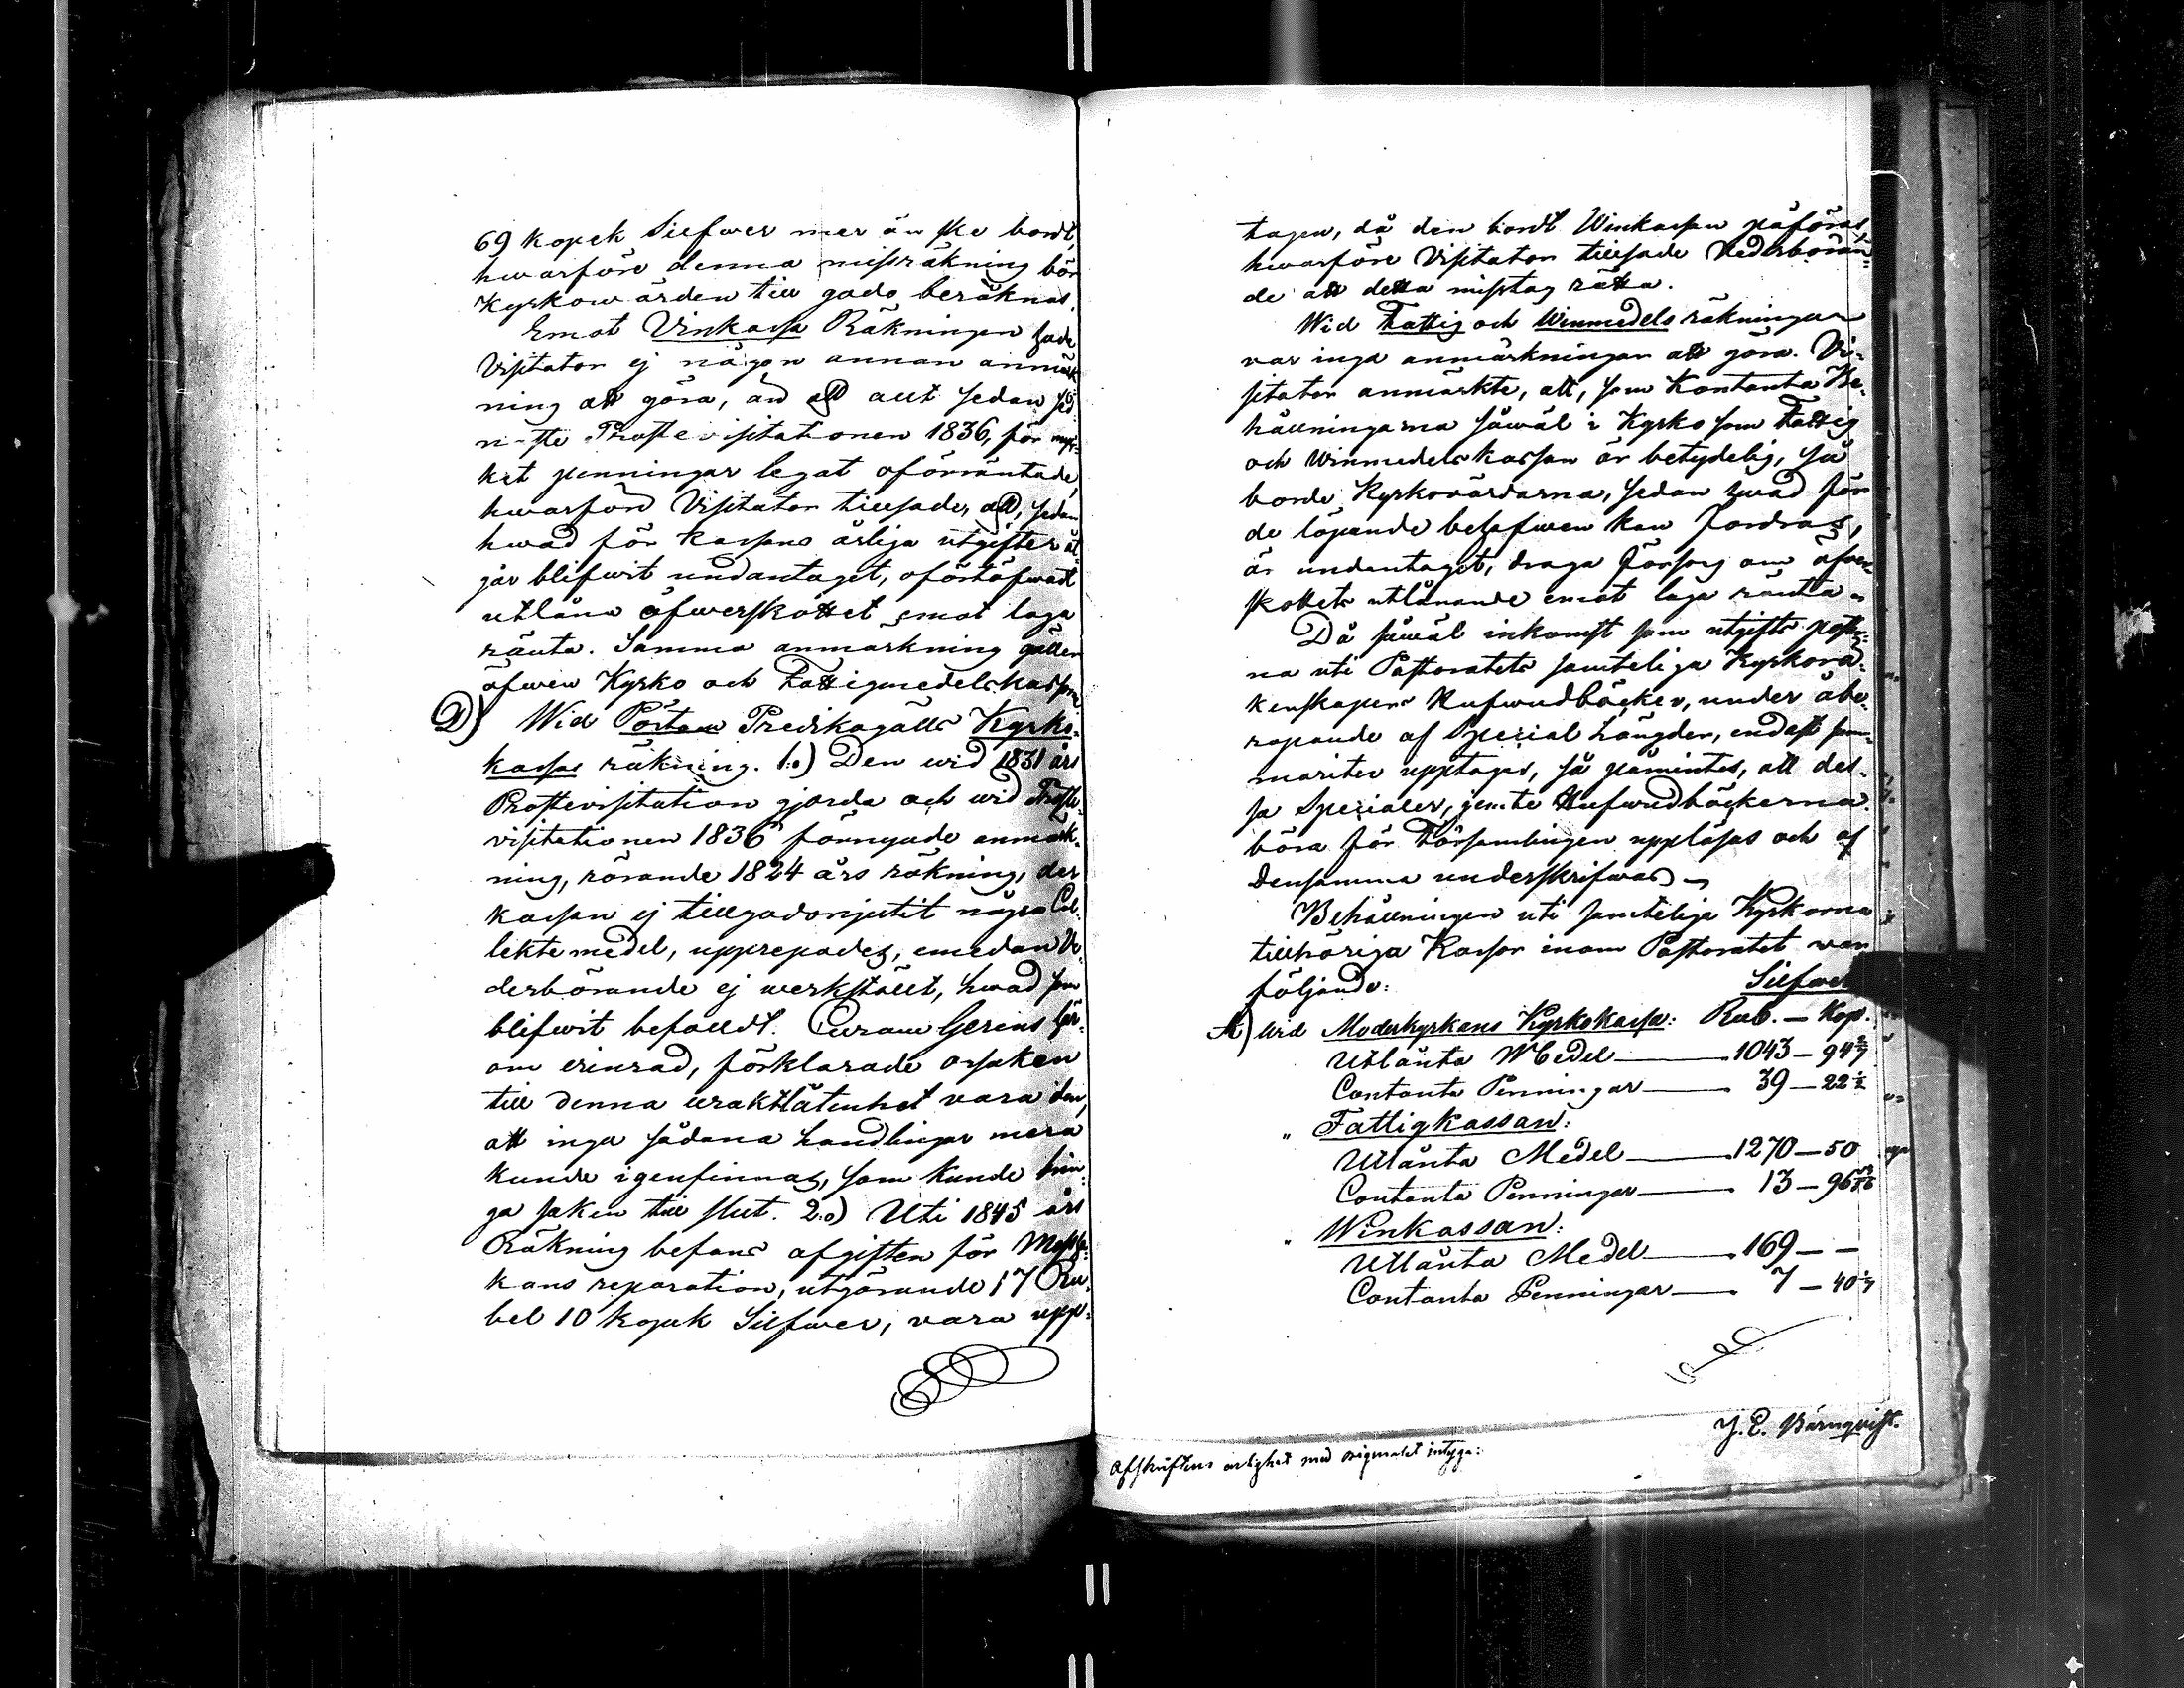 69 kopek Silfwer mer än ske bordt,
hwarföre denna missräkning bör
Kyrkowärden till godo beräknas.
Emot Vinkassa Räkningen hade
Visitator ej någon annan anmärk
ning att göra, än att allt sedan sed
n-ste Prostevisitationen 1836, för myc-
ket penningar legat oförräntade,
hwarföre Visitator tillsade, att, sedan
hwad för Kassans årliga utgifter åt
går blifwit undantaget, oförtöfwadt
utlåna öfwerskottet emot laga
ränta. Samma anmärkning gäller
öfwen Kyrko och Fattigmedelskassan
D) Wid Pörtom Predikagälls Kyrko-
kassas räkning. 1:o) Den wid 1831 års
Prostevisitation gjorda och wid Proste-
visitationen 1836 förnyade anmärk-
ning, rörande 1824 års räkning, der
kassan ej tillgodonjutit några Col-
lektemedel, upprepades, emedan We-
derbörande ej werkställt, hwad som
blifwit befalldt. Curam Gerens här-
om erinrad, förklarade orsaken
till denna uraktlåtenhet vara den,
att inga sådana handlingar mera
kunde igenfinnas, som kunde brin-
ga saken till slut. 2:o) Uti 1845 års
Räkning befans afgiften för Messha-
kans reparation, utgörande 17 Ru-
bel 10 kopek Silfwer, vara upp-
tagen, då den bordt Winkassan påföras,
hwarföre Visitator tillsade Vederböran-
de att detta misstag rätta.
Wid Fattig och Winmedels räkningar
var inga anmärkningar att göra. Vi-
sitator anmärkte, att, som Kontanta Be-
hållningarna såwäl i Kyrko som Fattig
och Winmedels kassan är betydelig, så
borde Kyrkovärdarna, sedan hwad för
de löpande behofwen kan fordras,
är undantaget, draga försorg om öfwer-
skottets utlånande emot laga ränta.
Då såwäl inkomst som utgifts poster-
na uti Pastoratets samteliga Kyrkorä-
kenskapers Hufwudböcker, under åbe-
ropande af Special Längder, endast sum-
mariter upptages, så påmintes, att des-
sa Specialer, jemte Hufwudböckerna
böra för Församlingen uppläsas och af
Densamma underskrifwas.
Behållningen uti samtelige Kyrkorna
tillhöriga Kassor inom Pastoratet war
följande: Silfwer
A) Wid Moderkyrkans Kyrkokassa: Rub. — Kop.
Utlånta Medel — 1043 — 94 2/7
Contanta Penningar — 39 — 22 1/2
" Fattigkassan:
Utlånta Medel — 1270 — 50
Contanta Penningar — 13 — 96
" Winkassan:
Utlånta Medel — 169 — —
Contanta Penningar — 7 — 40 1/7
Afskriftens ärlighet med originalet intyga:
J. E. Bärnqvist.